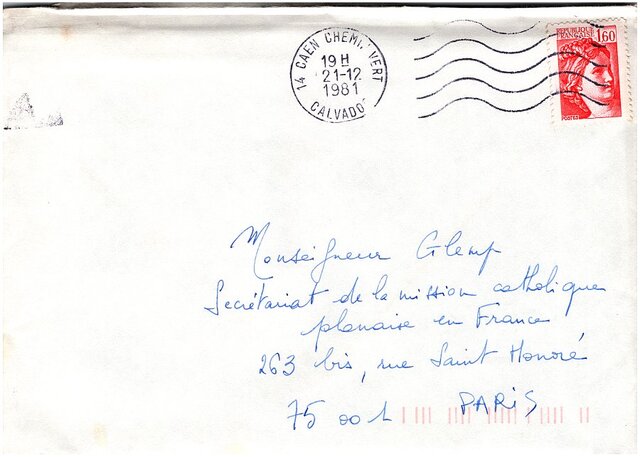 14 CAEN CHEMIN VERT
19 H
21-12
1981
CALVADOS
REPUBLIQUE
FRANÇAISE
1,60
POSTES
A
Monseigneur Glemp
Secrétariat de la mission catholique
plonaise en France
263 bis, rue Saint Honoré
75 001 PARIS